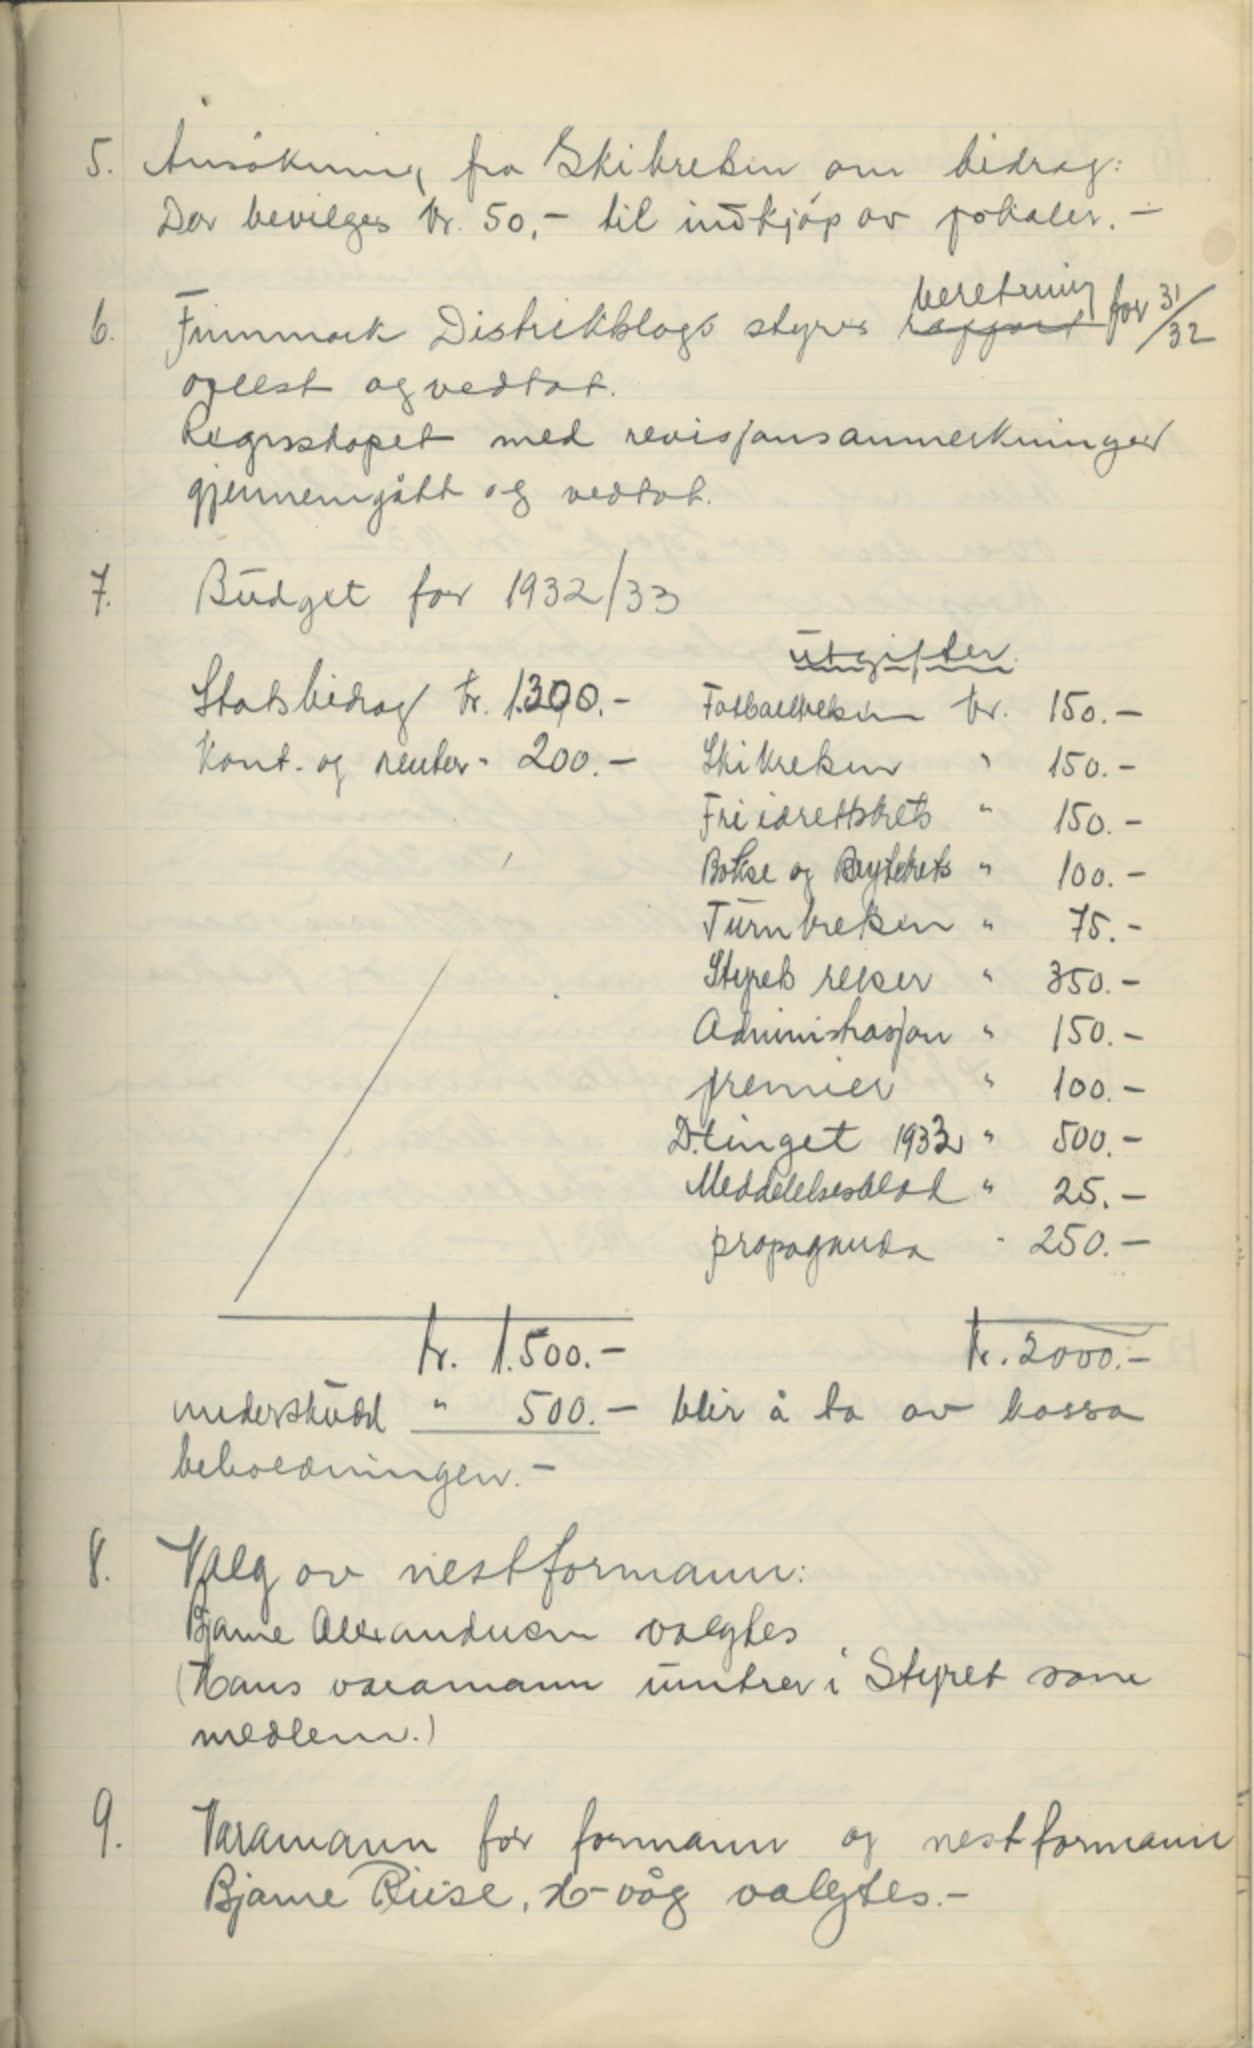 5. Ansökning fra Skikretsen om bidrag:
Der bevilges kr. 50,- til indkjöp av pokaler. -
6. Finnmark Distriktslags styres rapport beretning for 31/32
oplest og vedtat.
Regnskapet med revisjonsanmerkninger
gjennemgått og vedtat.
7. Budget for 1932/33
Utgifter
Statsbidrag kr. 1.300.- Fotballkretsen kr. 150.-
Kont. og renter " 200.- Skikretsen " 150.-
Fri idrettskrets " 150.-
Bokse og Brytekrets " 100.-
Turnkretsen " 75.-
Styrets reiser " 350.-
Administrasjon " 150.-
premier " 100.-
D.tinget 1933 " 500.-
Meddelelsesblad " 25.-
propaganda " 250.-
kr. 1.500.- kr. 2000.-
underskudd " 500.- blir å ta av kassa
beholdningen. -
8. Valg av nestformann:
Bjarne Alexandersen valgtes
(Hans varamann inntrer i Styret som
medlem.)
9. Varamann for formann og nestformann
Bjarne Riise, H-våg valgtes. -